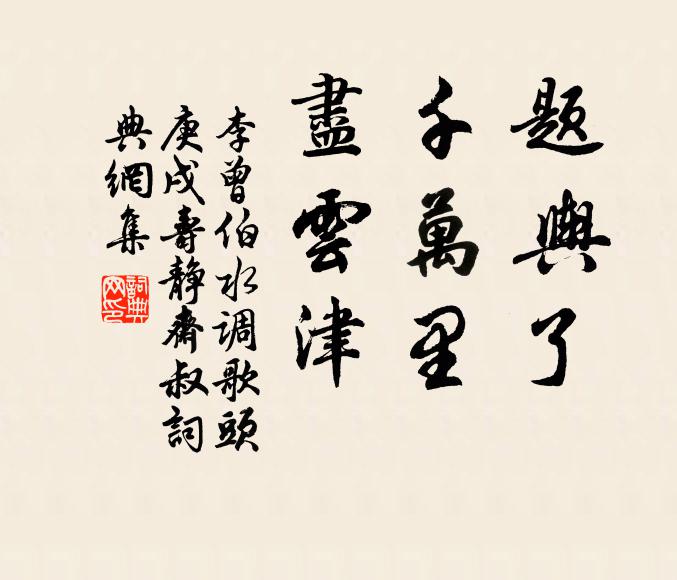 題輿了
千萬里
盡雲津
李曾伯水调歌頭
庚戌壽静齋叔詞
典網集
詞典
网印